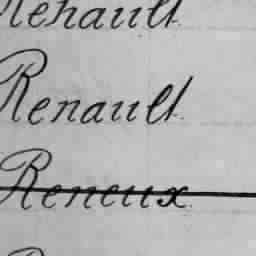 Renault
Renault
Reneux